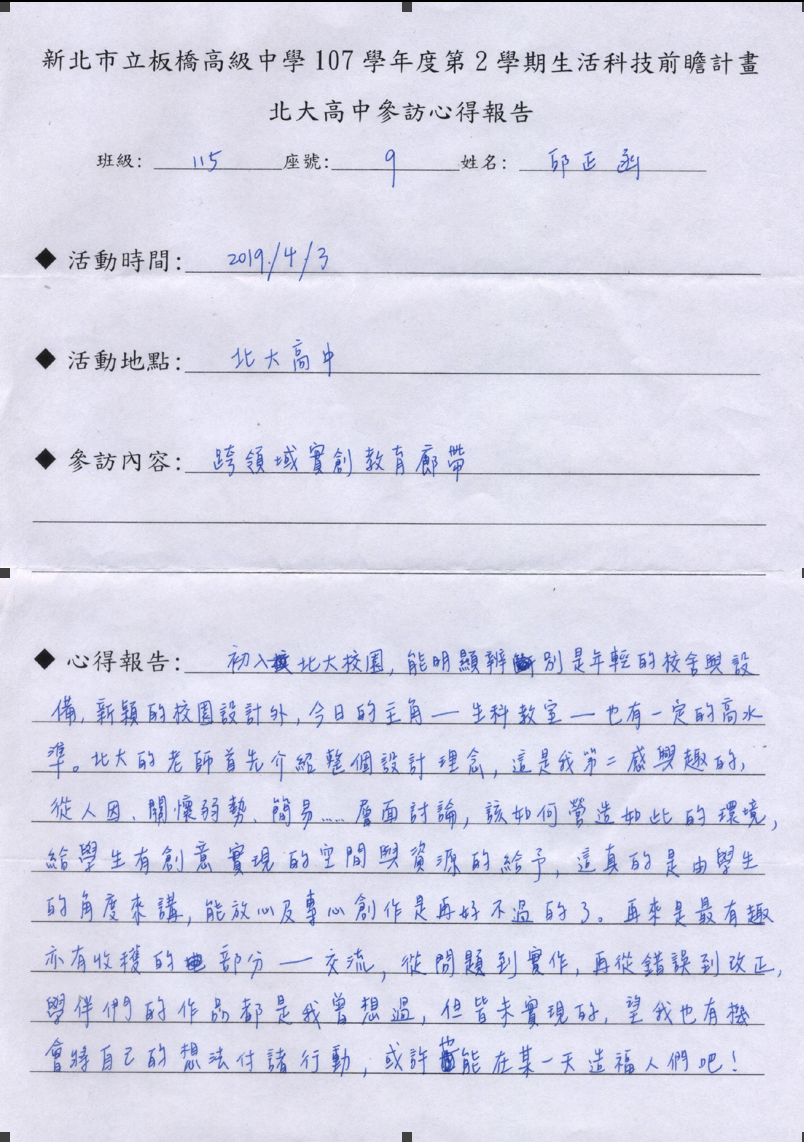 新北市立板橋高級中學 107 學年度第 2 學期生活科技前瞻計畫
北大高中參訪心得報告
班級: 115 座號: 9 姓名: 邱正函
◆ 活動時間: 2019/4/3
◆ 活動地點: 北大高中
◆ 參訪內容: 跨領域實創教育廊帶
◆ 心得報告: 初入北大校園,能明顯辨別是年輕的校舍與設
備,新穎的校園設計外,今日的主角—生科教室—也有一定的高水
準。北大的老師首先介紹整個設計理念,這是我第二感興趣的,
從人因、關懷弱勢、簡易……層面討論,該如何營造如此的環境,
給學生有創意實現的空間與資源的給予,這真的是由學生
的角度來講,能放心及專心創作是再好不過的了。再來是最有趣
亦有收穫的部分—交流,從問題到實作,再從錯誤到改正,
學伴們的作品都是我曾想過,但皆未實現的,望我也有機
會將自己的想法付諸行動,或許能在某一天造福人們吧!